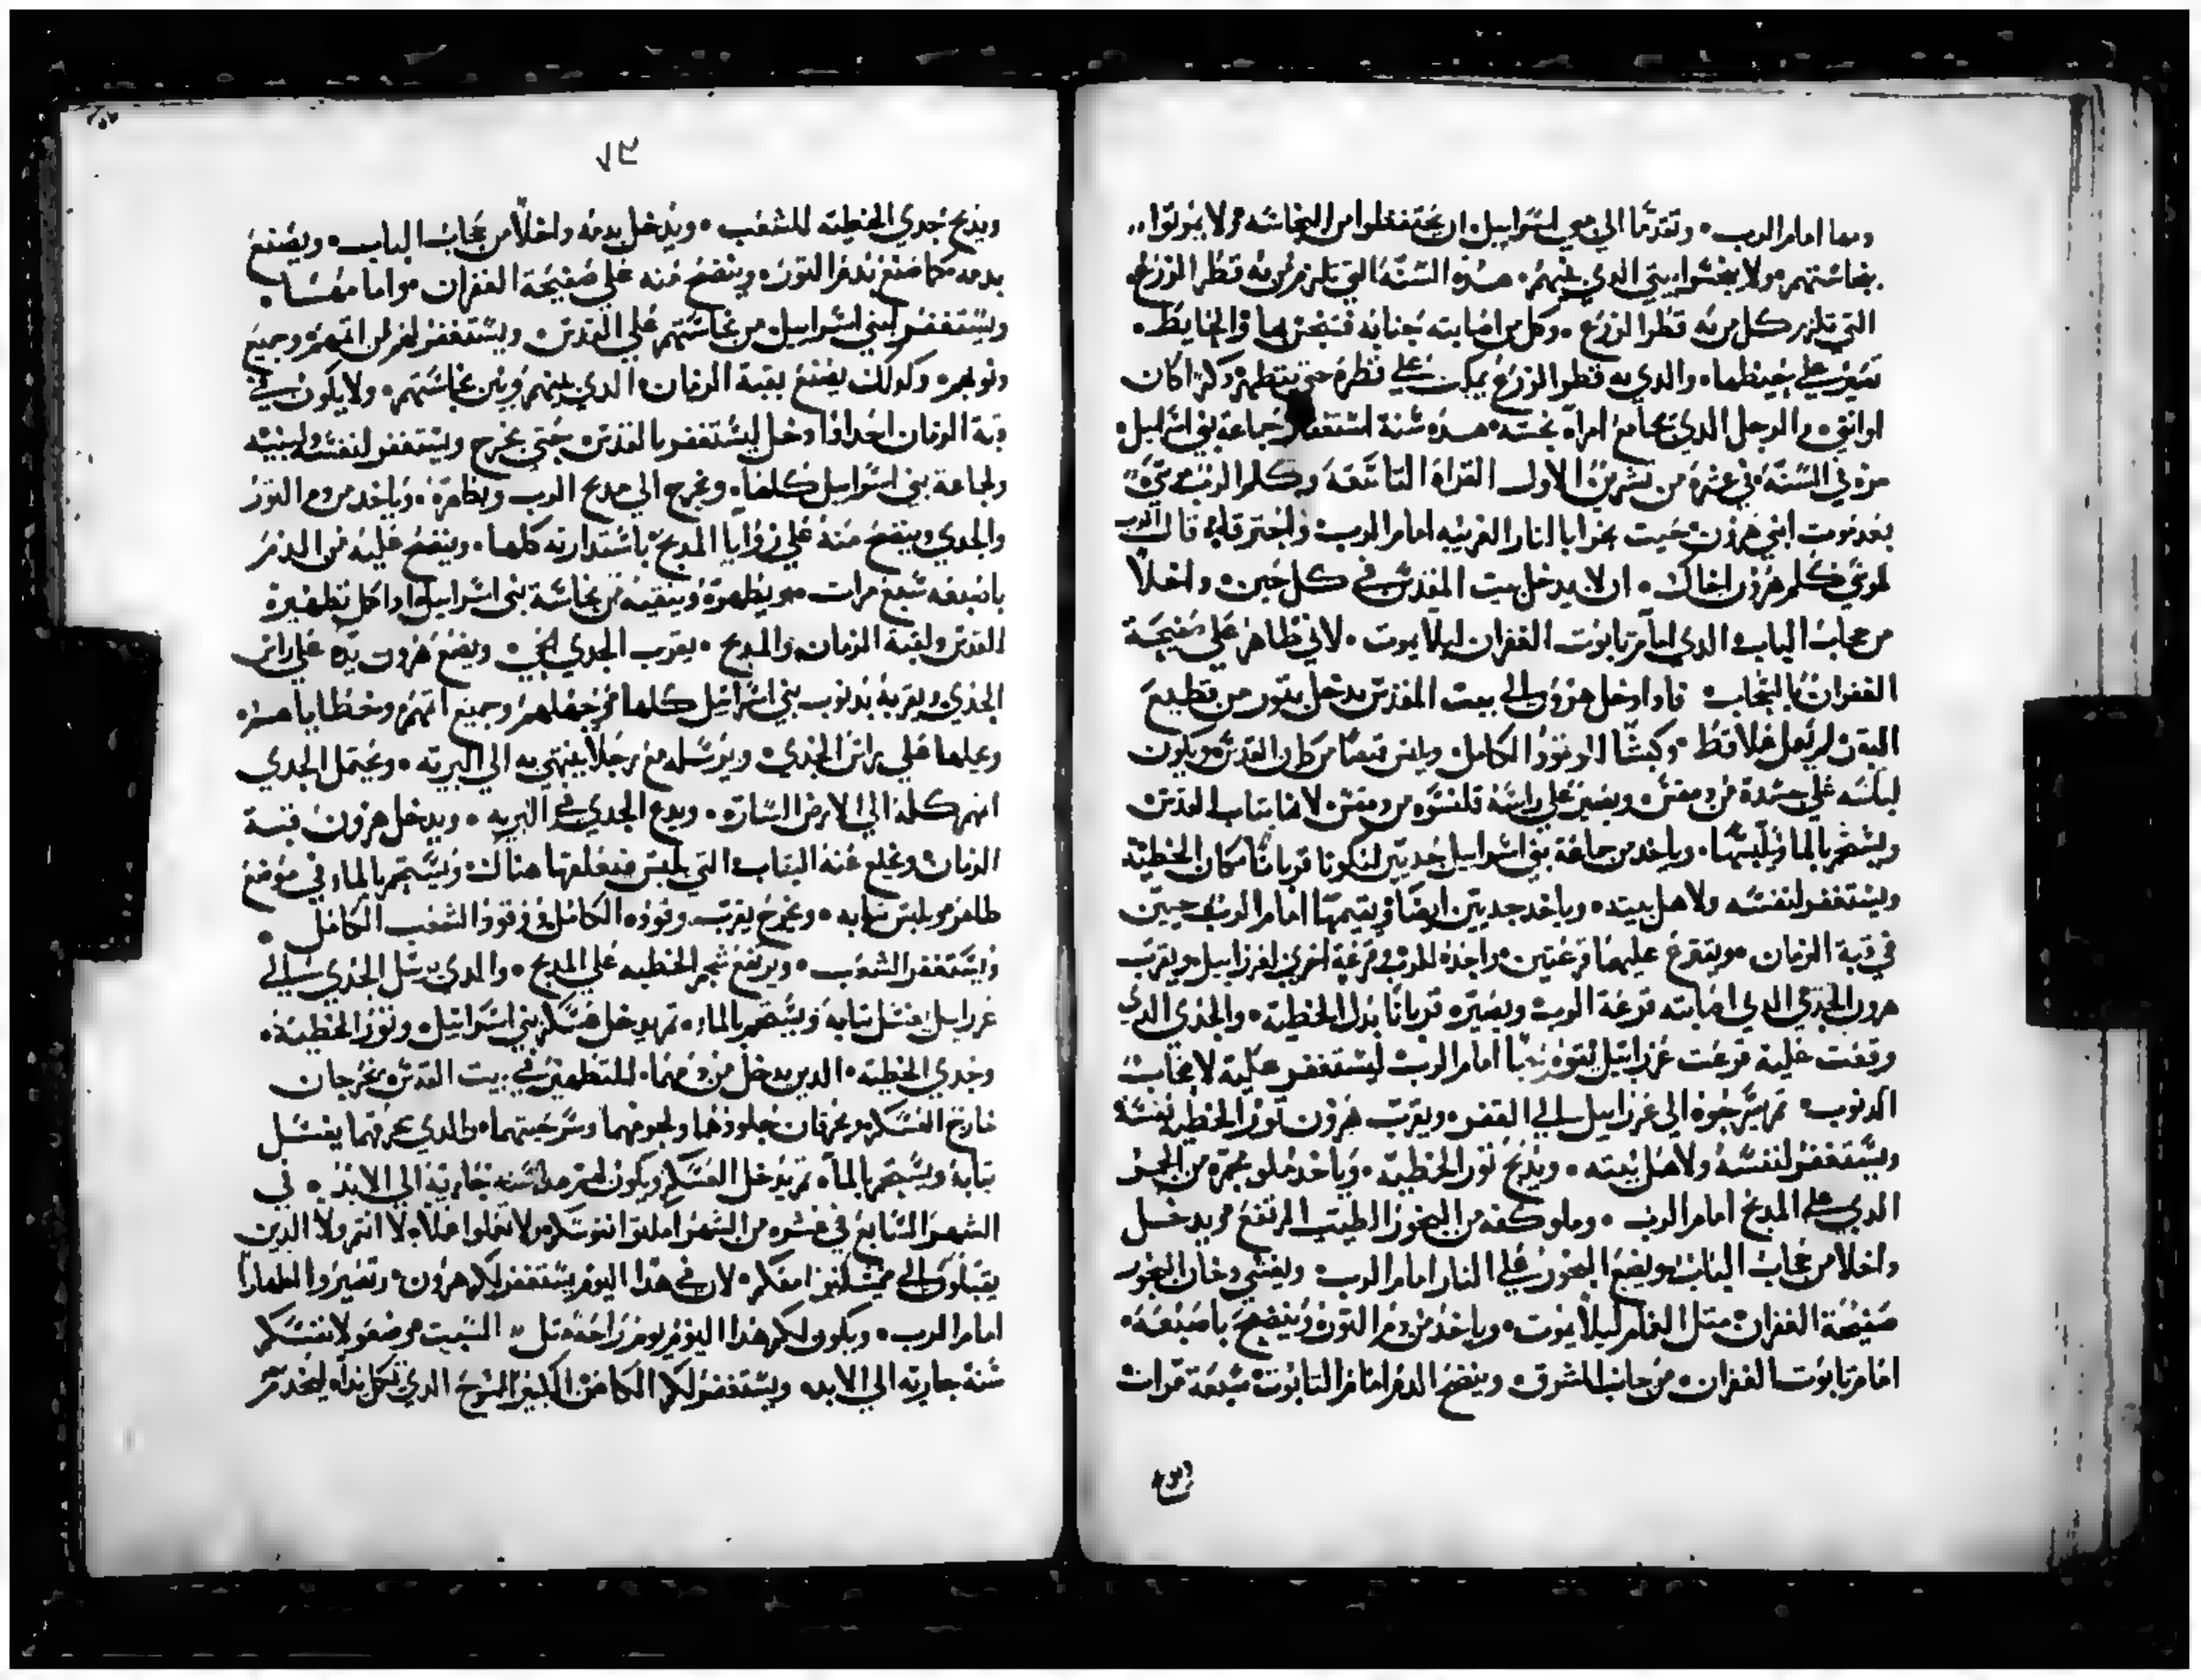 دمها امام الرب وتقدما الي بني اسراييل ان يحتفظوا من النجاسه ولا يموتوا
بنجاستهم ولا ينجسوا بيتي الدي بينهم هده السنة التي تلزم من به قطر الزرع
التي تلزم كل من به قطر الزرع وكل من اصابته جنابه فتنجس بها والحايظ
علي حيظها والدي به قطر الزرع علي قطره حتي يتطهر دكرا كان
او انتي والرجل الدي يجامع امراة نجسه هده سنة استغفار جماعة بني اسراييل
مره في السنة في عشره من تشرين الاول القراة التاسعة وكلم الرب موسي
بعد موت ابني هرون حيت بخرا بالنار الغريبه امام الرب واحترقا قال الرب
لموسي كلم هرون اخاك ان لا يدخل بيت المقدس في كل حين داخلا
من حجاب الباب الدي امام تابوت الغفران ليلا يموت لاني ظاهر علي صفيحة
الغفران بالسحاب فادا دخل هرون الي بيت المقدس يدخل بتور من قطيع
البقر لم يعمل عملا قط وكبشا للوقود الكامل ويلبس قميصا من كتان القدس ويكون
لباسه علي جسده من دمقس ويصير علي راسه قلنسوه من دمقس لانها تياب القدس
ويستحم بالما ويلبسها وياخد من جماعة بني اسراييل جديين ليكونا قربانا مكان الخطية
ويستغفر لنفسه ولاهل بيته وياخد جديين ايضا ويقيمهما امام الرب حيين
في قبة الزمان ويقترع عليهما قرعتين واحدة للرب وقرعة اخري لعزراييل ويقرب
هرون الجدي الدي اصابته قرعة الرب ويصيره قربانا بدل الخطية والجدي الدي
وقعت عليه قرعت عزراييل يقوه حيا امام الرب ليستغفر عليه لاصحاب
الدنوب تم يسرحوه الي عزراييل الي القفر ويقرب هرون تور الخطيه لنفسه
ويستغفر لنفسه ولاهل بيته ويدبح تور الخطية وياخد ملو مجمره من الجمر
الدي علي المدبح امام الرب وملو كفه من البخور الطيب المرتفع ويدخل
داخلا من حجاب الباب ويضع البخور علي النار امام الرب ويغشي دخان البخور
صفيحة الغفران متل الغمام ليلا يموت وياخد من دم التور وينضح باصبعه
امام تابوت الغفران من جانب المشرق وينضح الدم امام التابوت سبعة مرات
ويدبح جدي الخطيه للشعب ويدخل بدمه داخلا من حجاب الباب ويصنع
بدمه كما صنع بدم التور وينضح منه علي صفيحة الغفران
ويستغفر لبني اسراييل من نجاستهم علي القدس ويستغفر لهم من اتمهم وجميع
دنوبهم وكدلك يصنع بقبة الزمان الدي بينهم وبين نجاستهم ولا يكون في
قبة الزمان احد ادا دخل ليستغفر بالقدس حتي يخرج ويستغفر لنفسه ولبيته
ولجماعة بني اسراييل كلها ويخرج الي مدبح الرب ويطهره وياخد من دم التور
والجدي وينضح منه علي زوايا المدبح باستدارته كلها وينضح عليه من الدم
باصبعه سبع مرات ويطهره وينقيه من نجاسة بني اسراييل وادا كمل تطهيره
القدس ولقبة الزمان والمدبح يقرب الجدي الحي ويضع هرون يده علي راس
الجدي ويقر به بدنوب بني اسراييل كلها وجميع اتمهم وخطاياهم
ويجعلها علي راس الجدي ويرسله مع رجلا ينتهي به الي البريه ويحتمل الجدي
اتمهم كلها الي الارض ويدع الجدي في البريه ويدخل هرون قبة
الزمان ويخلع عنه التياب التي لبس فيخلعها هناك ويستحم بالماء في موضع
طاهر ويلبس تيابه ويخرج يقرب وقوده الكامل ووقود الشعب الكامل
ويستغفر الشعب ويرتفع شحم الخطيه علي المدبح والدي يرسل الجدي الي
عزراييل يغسل تيابه ويستحم بالماء تم يدخل عسكر بني اسراييل وتور الخطية
وجدي الخطية الدين يدخل من دمهما للتطهير في بيت القدس يخرجان
خارج العسكر ويحرقان جلودهما ولحومهما وسرجينهما والدي يحرقهما يغسل
تيابه ويستحم بالماء تم يدخل العسكر ويكون لهم هدا سنه جاريه الي الابد في
الشهر السابع في عشره من الشهر املقوا انفسكم ولا تعملوا عملا لا انتم ولا الدين
يقبلون الي معكم لان في هدا اليوم يستغفر لكم هرون وتصيروا اطهارا
امام الرب ويكون لكم هدا اليوم يوم راحة متل السبت وضعوا لانفسكم
سنة جاريه الي الابد ويستغفر لكم الكاهن الكبير الممسوح الدي يكمل يداه ليخدم